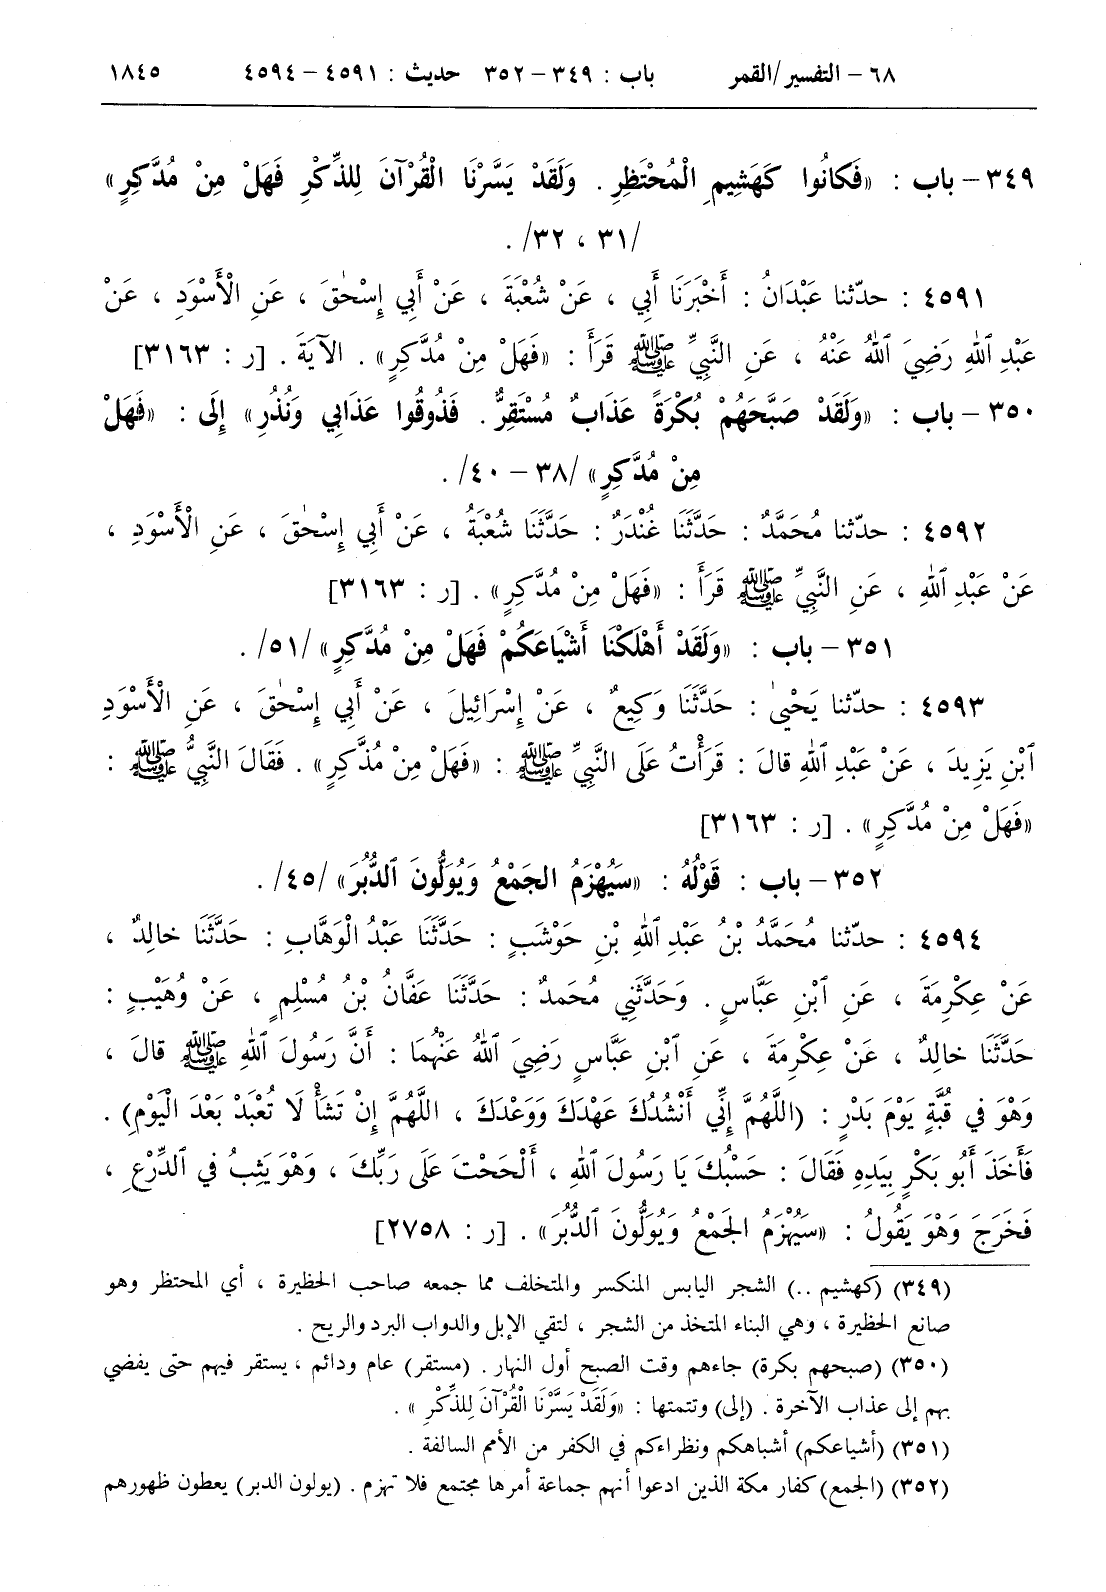 ٦٨ – التفسير/القمر باب : ٣٤٩ – ٣٥٢ حديث : ٤٥٩١ – ٤٥٩٤ ١٨٤٥
٣٤٩ – باب : «فَكانُوا كَهَشِيمِ الْمُحْتَظِرِ . وَلَقَدْ يَسَّرْنَا الْقُرْآنَ لِلذِّكْرِ فَهَلْ مِنْ مُدَّكِرٍ»
/٣١ ، ٣٢/ .
٤٥٩١ : حدّثنا عَبْدَانُ : أَخْبَرَنَا أَبِي ، عَنْ شُعْبَةَ ، عَنْ أَبِي إِسْحٰقَ ، عَنِ الْأَسْوَدِ ، عَنْ
عَبْدِ ٱللهِ رَضِيَ ٱللهُ عَنْهُ ، عَنِ النَّبِيِّ ﷺ قَرَأَ : «فَهَلْ مِنْ مُدَّكِرٍ» . الآيَةَ . [ر : ٣١٦٣]
٣٥٠ – باب : «وَلَقَدْ صَبَّحَهُمْ بُكْرَةً عَذَابٌ مُسْتَقِرٌّ . فَذُوقُوا عَذَابِي وَنُذُرِ» إِلَى : «فَهَلْ
مِنْ مُدَّكِرٍ» /٣٨ – ٤٠/ .
٤٥٩٢ : حدّثنا مُحَمَّدٌ : حَدَّثَنَا غُنْدَرٌ : حَدَّثَنَا شُعْبَةُ ، عَنْ أَبِي إِسْحٰقَ ، عَنِ الْأَسْوَدِ ،
عَنْ عَبْدِ ٱللهِ ، عَنِ النَّبِيِّ ﷺ قَرَأَ : «فَهَلْ مِنْ مُدَّكِرٍ» . [ر : ٣١٦٣]
٣٥١ – باب : «وَلَقَدْ أَهْلَكْنَا أَشْيَاعَكُمْ فَهَلْ مِنْ مُدَّكِرٍ» /٥١/ .
٤٥٩٣ : حدّثنا يَحْيىٰ : حَدَّثَنَا وَكِيعٌ ، عَنْ إِسْرَائِيلَ ، عَنْ أَبِي إِسْحٰقَ ، عَنِ الْأَسْوَدِ
ٱبْنِ يَزِيدَ ، عَنْ عَبْدِ ٱللهِ قالَ : قَرَأْتُ عَلَى النَّبِيِّ ﷺ : «فَهَلْ مِنْ مُذَّكِرٍ» . فَقَالَ النَّبِيُّ ﷺ :
«فَهَلْ مِنْ مُدَّكِرٍ» . [ر : ٣١٦٣]
٣٥٢ – باب : قَوْلُهُ : «سَيُهْزَمُ الجَمْعُ وَيُوَلُّونَ ٱلدُّبُرَ» /٤٥/ .
٤٥٩٤ : حدّثنا مُحَمَّدُ بْنُ عَبْدِ ٱللهِ بْنِ حَوْشَبٍ : حَدَّثَنَا عَبْدُ الْوَهَّابِ : حَدَّثَنَا خالِدٌ ،
عَنْ عِكْرِمَةَ ، عَنِ ٱبْنِ عَبَّاسٍ . وَحَدَّثَنِي مُحَمدٌ : حَدَّثَنَا عَفَّانُ بْنُ مُسْلِمٍ ، عَنْ وُهَيْبٍ :
حَدَّثَنَا خالِدٌ ، عَنْ عِكْرِمَةَ ، عَنِ ٱبْنِ عَبَّاسٍ رَضِيَ ٱللهُ عَنْهُمَا : أَنَّ رَسُولَ ٱللهِ ﷺ قالَ ،
وَهْوَ في قُبَّةٍ يَوْمَ بَدْرٍ : (اللَّهُمَّ إِنِّي أَنْشُدُكَ عَهْدَكَ وَوَعْدَكَ ، اللَّهُمَّ إِنْ تَشَأْ لَا تُعْبَدْ بَعْدَ الْيَوْمِ) .
فَأَخَذَ أَبُو بَكْرٍ بِيَدِهِ فَقَالَ : حَسْبُكَ يَا رَسُولَ ٱللهِ ، أَلْحَحْتَ عَلَى رَبِّكَ ، وَهْوَ يَثِبُ في ٱلدِّرْعِ ،
فَخَرَجَ وَهْوَ يَقُولُ : «سَيُهْزَمُ الجَمْعُ وَيُوَلُّونَ ٱلدُّبُرَ» . [ر : ٢٧٥٨]
(٣٤٩) (كهشيم ..) الشجر اليابس المنكسر والمتخلف مما جمعه صاحب الحظيرة ، أي المحتظر وهو
صانع الحظيرة ، وهي البناء المتخذ من الشجر ، لتقي الإبل والدواب البرد والريح .
(٣٥٠) (صبحهم بكرة) جاءهم وقت الصبح أول النهار . (مستقر) عام ودائم ، يستقر فيهم حتى يفضي
بهم إلى عذاب الآخرة . (إلى) وتتمتها : «وَلَقَدْ يَسَّرْنَا الْقُرْآنَ لِلذِّكْرِ» .
(٣٥١) (أشياعكم) أشباهكم ونظراءكم في الكفر من الأمم السالفة .
(٣٥٢) (الجمع) كفار مكة الذين ادعوا أنهم جماعة أمرها مجتمع فلا تهزم . (يولون الدبر) يعطون ظهورهم